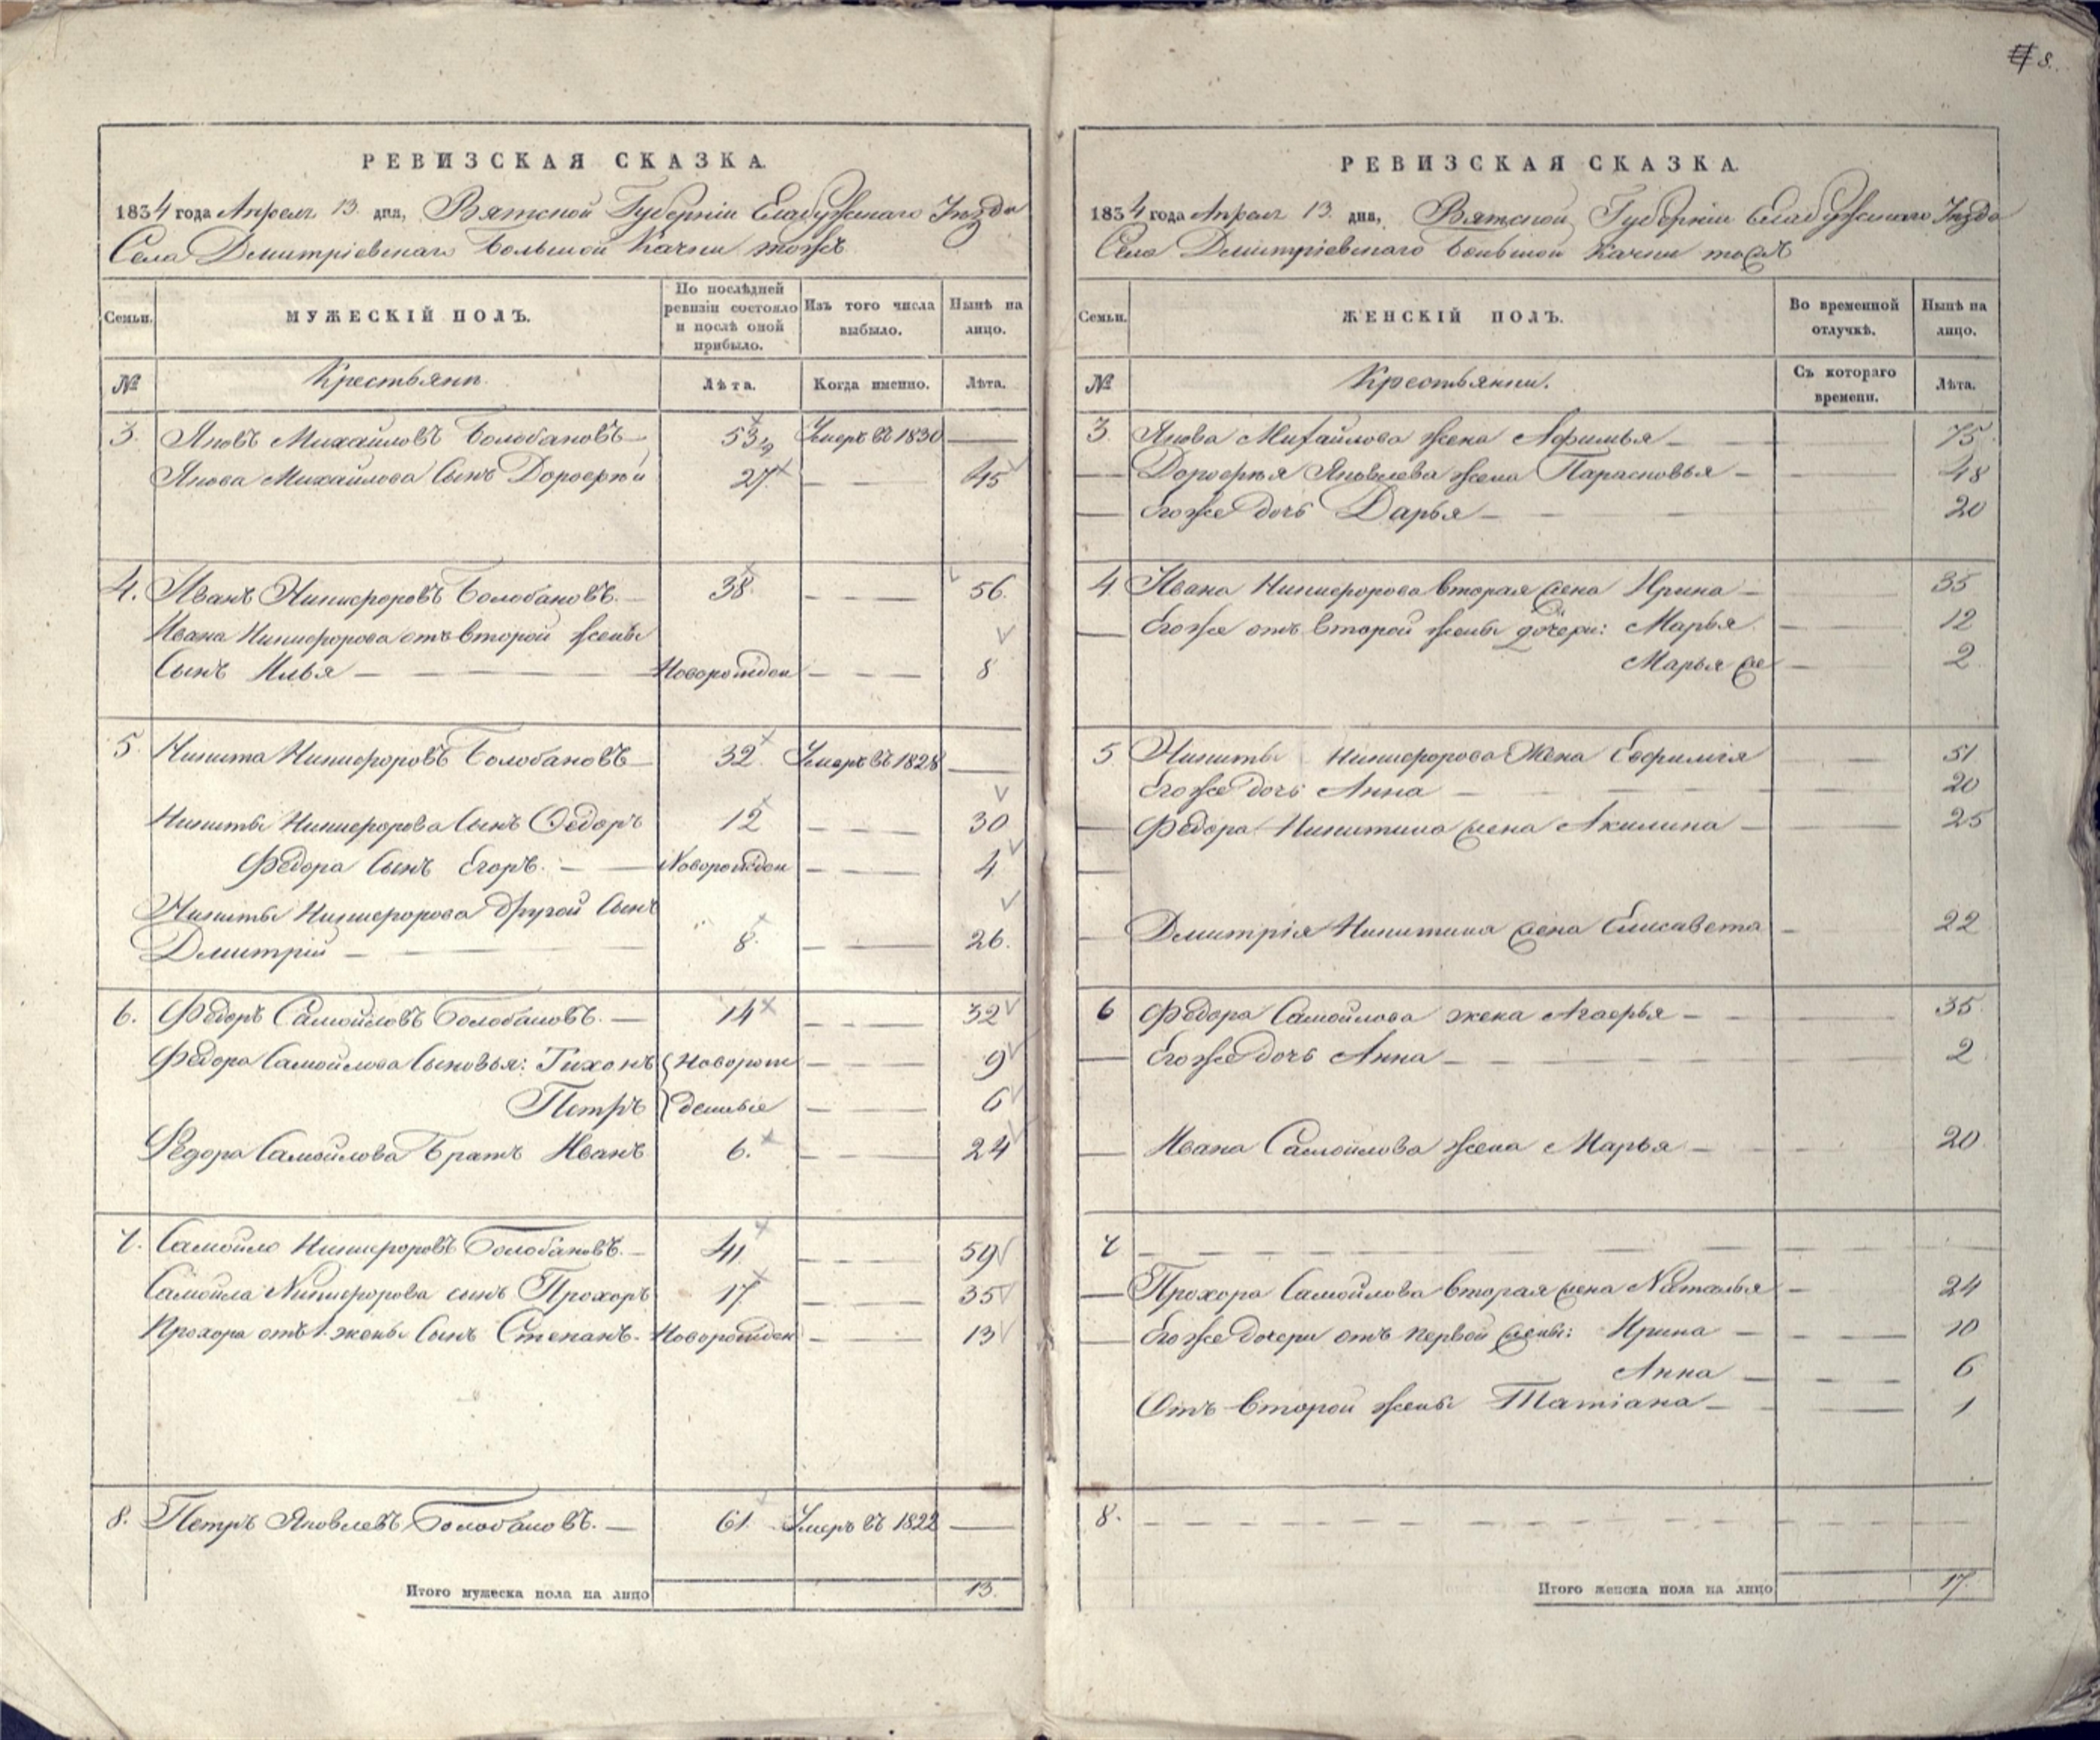 8.
РЕВИЗСКАЯ СКАЗКА.
1834 года Апреля 13. дня, Вятской Губерніи Елабужскаго Уѣзда
Села Дмитріевскаго Большой Качки тожъ
Семьи.
МУЖЕСКІЙ ПОЛЪ.
По послѣдней ревизіи состояло и послѣ оной прибыло.
Изъ того числа выбыло.
Нынѣ на лицо.
№
Крестьяни.
Лѣта.
Когда именно.
Лѣта.
3. Яковъ Михайловъ Болобановъ 53 Умеръ въ 1830
Якова Михайлова Сынъ Дорофѣй 27 45
4. Иванъ Никифоровъ Болобановъ. 38. 56.
Ивана Никифорова отъ второй жены
Сынъ Илья Новорожден 8
5 Никита Никифоровъ Болобановъ 32. Умеръ въ 1828
Никиты Никифорова Сынъ Ѳедоръ 12 30
Федора Сынъ Егоръ. Новорожден 4
Никиты Никифорова другой Сынъ
Дмитрій 8. 26.
6. Федоръ Самойловъ Болобановъ. 14 32
Федора Самойлова Сыновья: Тихонъ Новорож 9
Петръ денные 6
Федора Самойлова Братъ Иванъ 6. 24
7. Самойло Никифоровъ Болобановъ. 41. 59
Самойла Никифорова сынъ Прохоръ 17. 35
Прохора отъ 1. жены Сынъ Степанъ. Новорожден 13
8. Петръ Яковлевъ Болобановъ. 61. Умеръ въ 1822
Итого мужеска пола на лицо 13.
РЕВИЗСКАЯ СКАЗКА.
1834 года Апреля 13. дня, Вятской Губерніи Елабужскаго Уѣзда
Села Дмитріевскаго Большой Качки тожъ
Семьи.
ЖЕНСКІЙ ПОЛЪ.
Во временной отлучкѣ.
Нынѣ на лицо.
№
Крестьянки.
Съ котораго времени.
Лѣта.
3. Якова Михайлова жена Афимья 75.
Дорофѣя Яковлева жена Парасковья 48
Егоже дочь Дарья 20
4 Ивана Никифорова вторая жена Ирина 35
Егоже отъ второй жены дочери: Марья 12
Марья же 2
5 Никиты Никифорова Жена Евфимія 51
Егоже дочь Анна 20
Федора Никитина жена Акилина 25
Дмитрія Никитина жена Елисавета 22
6 Федора Самойлова жена Агафья 35
Егоже дочь Анна 2
Ивана Самойлова жена Марья 20
7
Прохора Самойлова вторая жена Наталья 24
Егоже дочери отъ первой жены: Ирина 10
Анна 6
Отъ второй жены Татіана 1
8.
Итого женска пола на лицо 17.